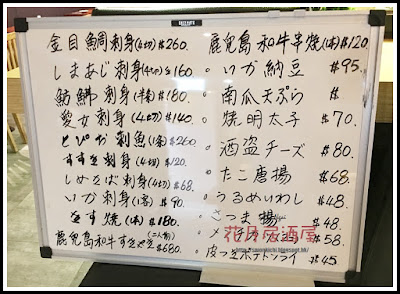 金目鯛刺身(4切)$260.
しまあじ刺身(4切)$160
魴鮄刺身(半条)$180
愛女刺身(4切)$140.
刺魚(1条)$260
すずき刺身(4切)$120.
しめさば刺身(4切)$68.
いか刺身 $90.
焼 $180.
鹿児島和牛すき焼き(二人前)$680.
鹿児島和牛串焼(1本)$120.
いか納豆 $95.
南瓜天ぷら
焼明太子 $70.
酒盗チーズ $80
たこ唐揚 $68.
うるめいわし $48.
さつま揚 $48.
$58.
皮つきポテトフライ $45
花月居酒屋